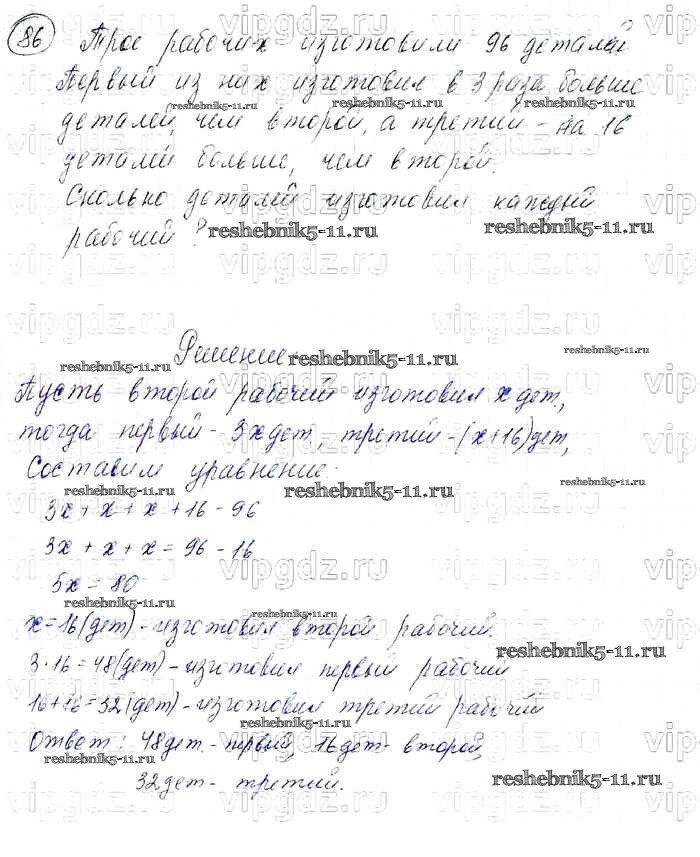 86 Трое рабочих изготовили 96 деталей
Первый из них изготовил в 3 раза больше
деталей, чем второй, а третий - на 16
деталей больше, чем второй.
Сколько деталей изготовил каждый
рабочий?
Решение.
Пусть второй рабочий изготовил x дет,
тогда первый - 3x дет, третий - (x+16) дет,
Составим уравнение:
3x + x + x + 16 - 96
3x + x + x = 96 - 16
5x = 80
x = 16 (дет) - изготовил второй рабочий.
3·16 = 48 (дет) - изготовил первый рабочий
16+16 = 32 (дет) - изготовил третий рабочий
Ответ: 48 дет - первый, 16 дет - второй,
32 дет - третий.
vipgdz.ru
reshebnik5-11.ru